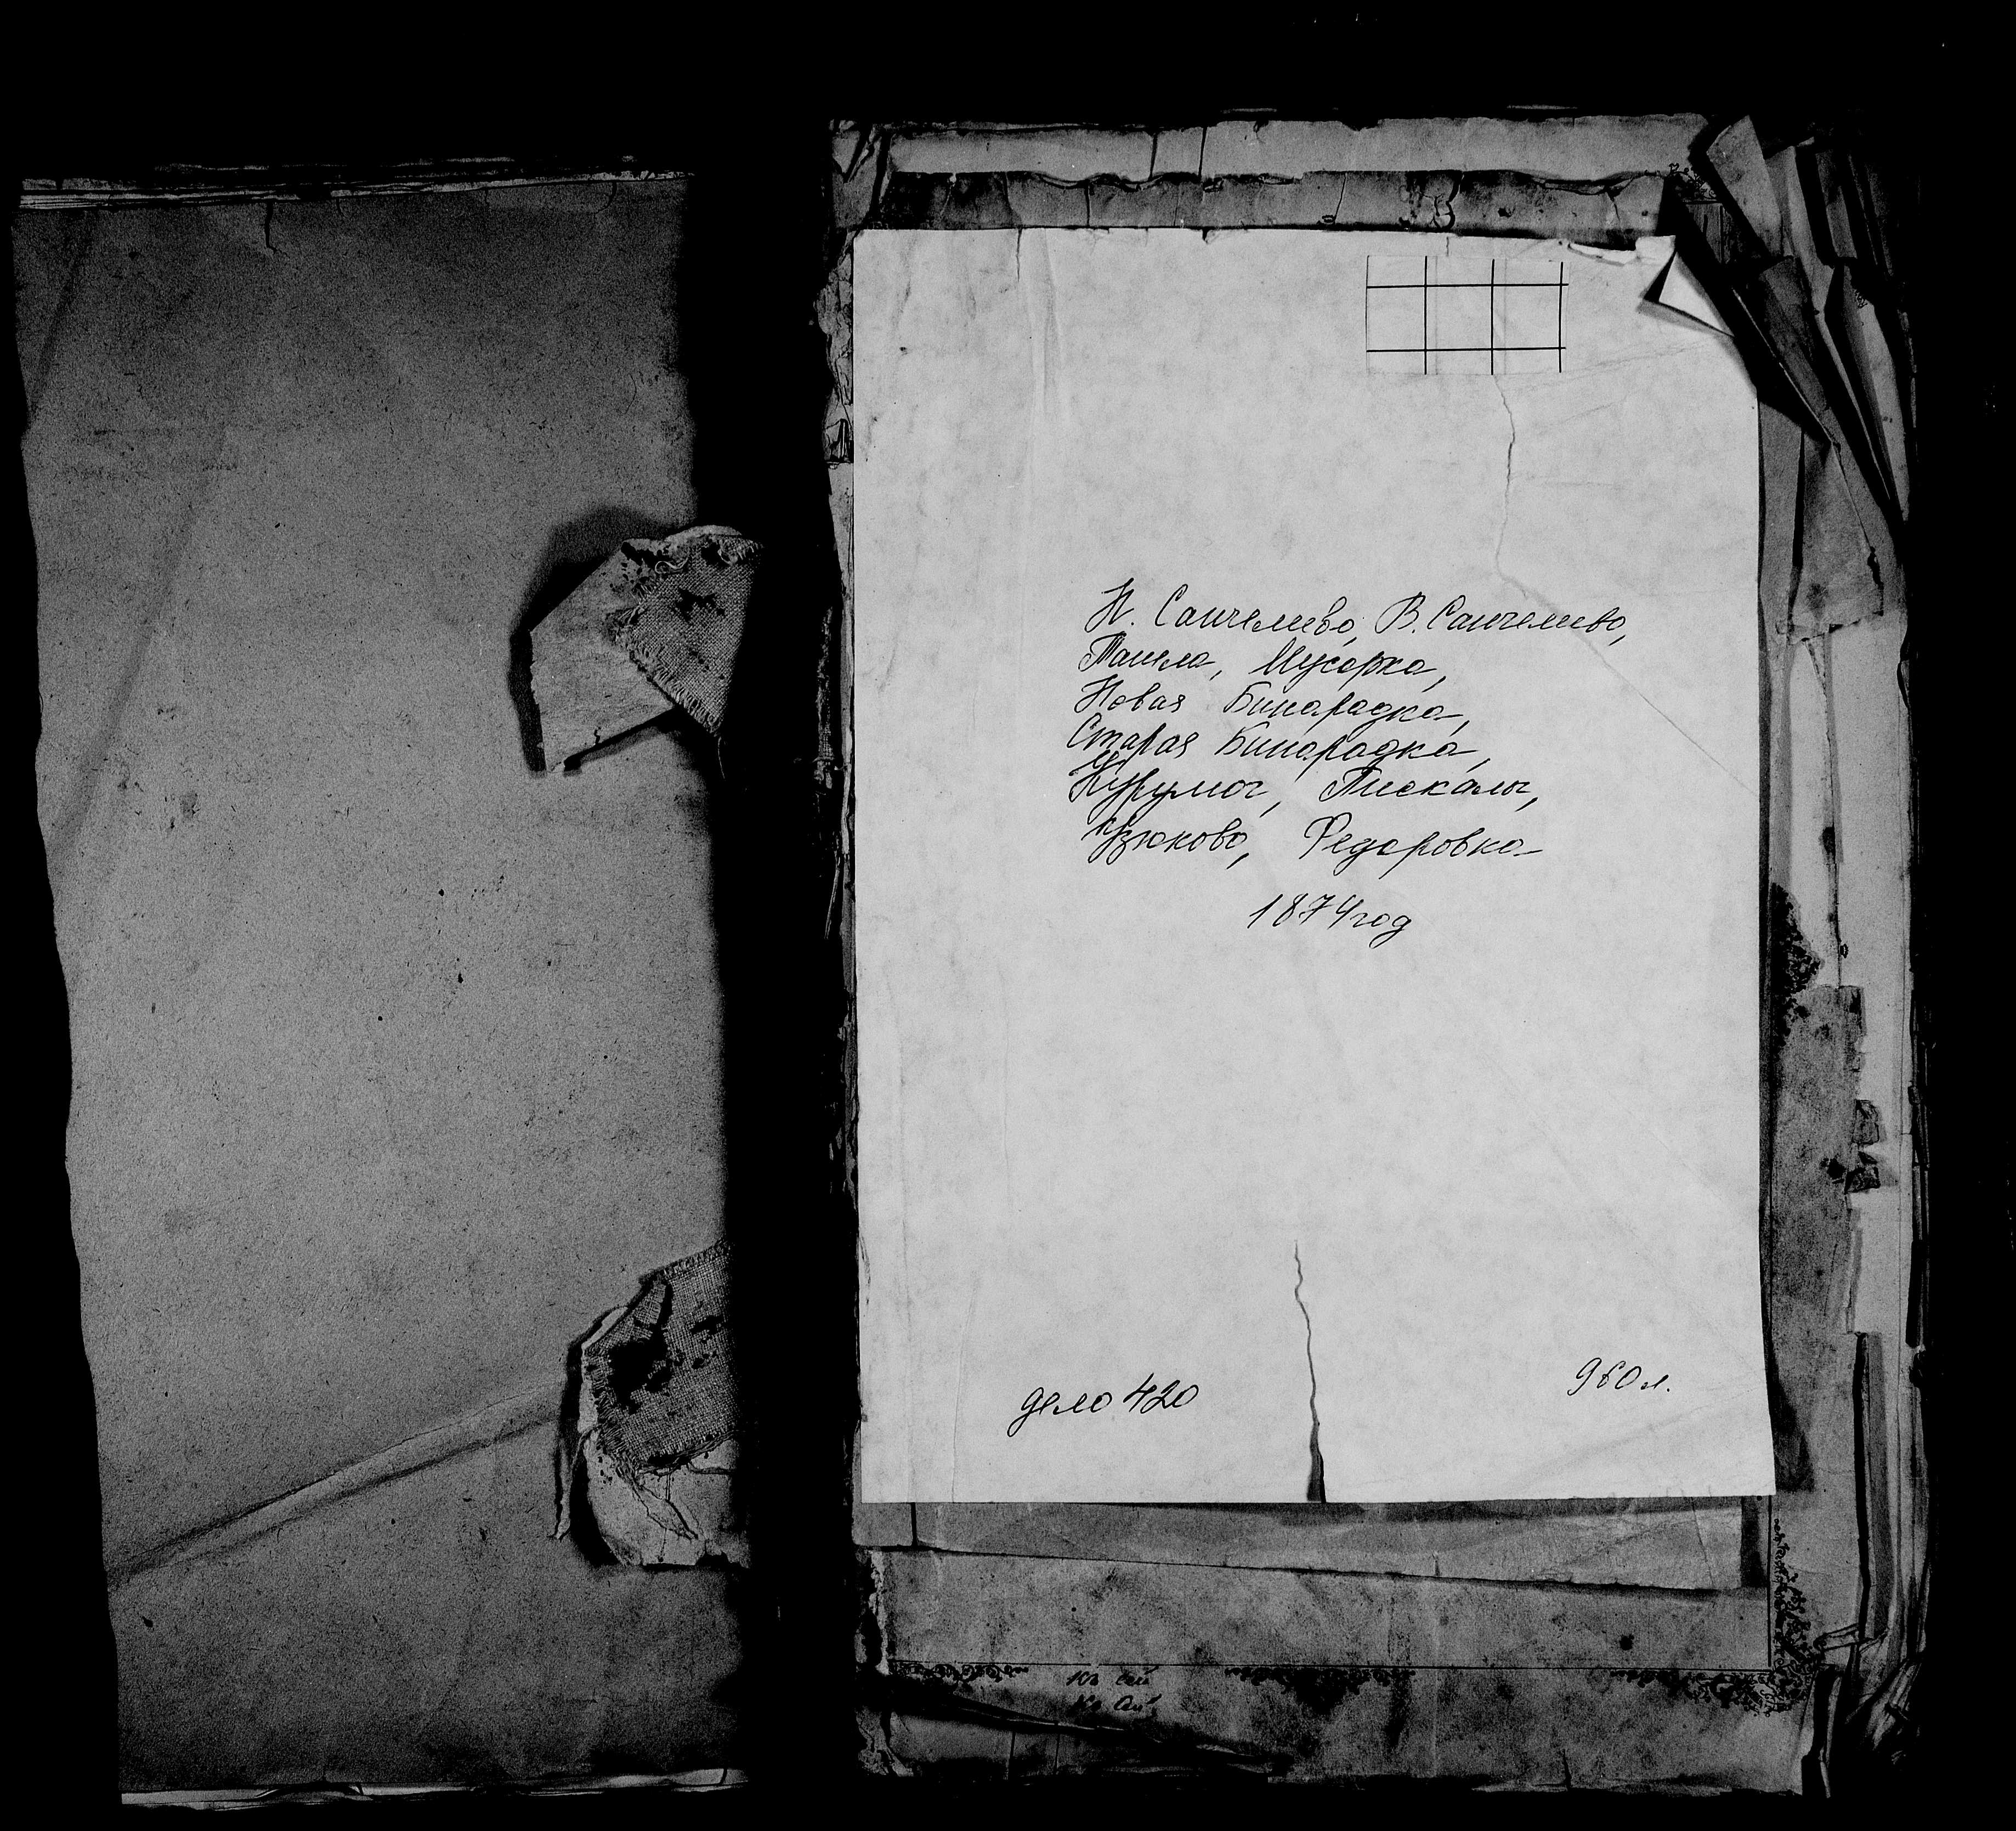 Н. Санчелеево, В. Санчелеево,
Ташла, Мусорка,
Новая Бинарадка,
Старая Бинарадка,
Курумоч, Пискалы,
Узюково, Федоровка
1874 год
дело 420
960 л.